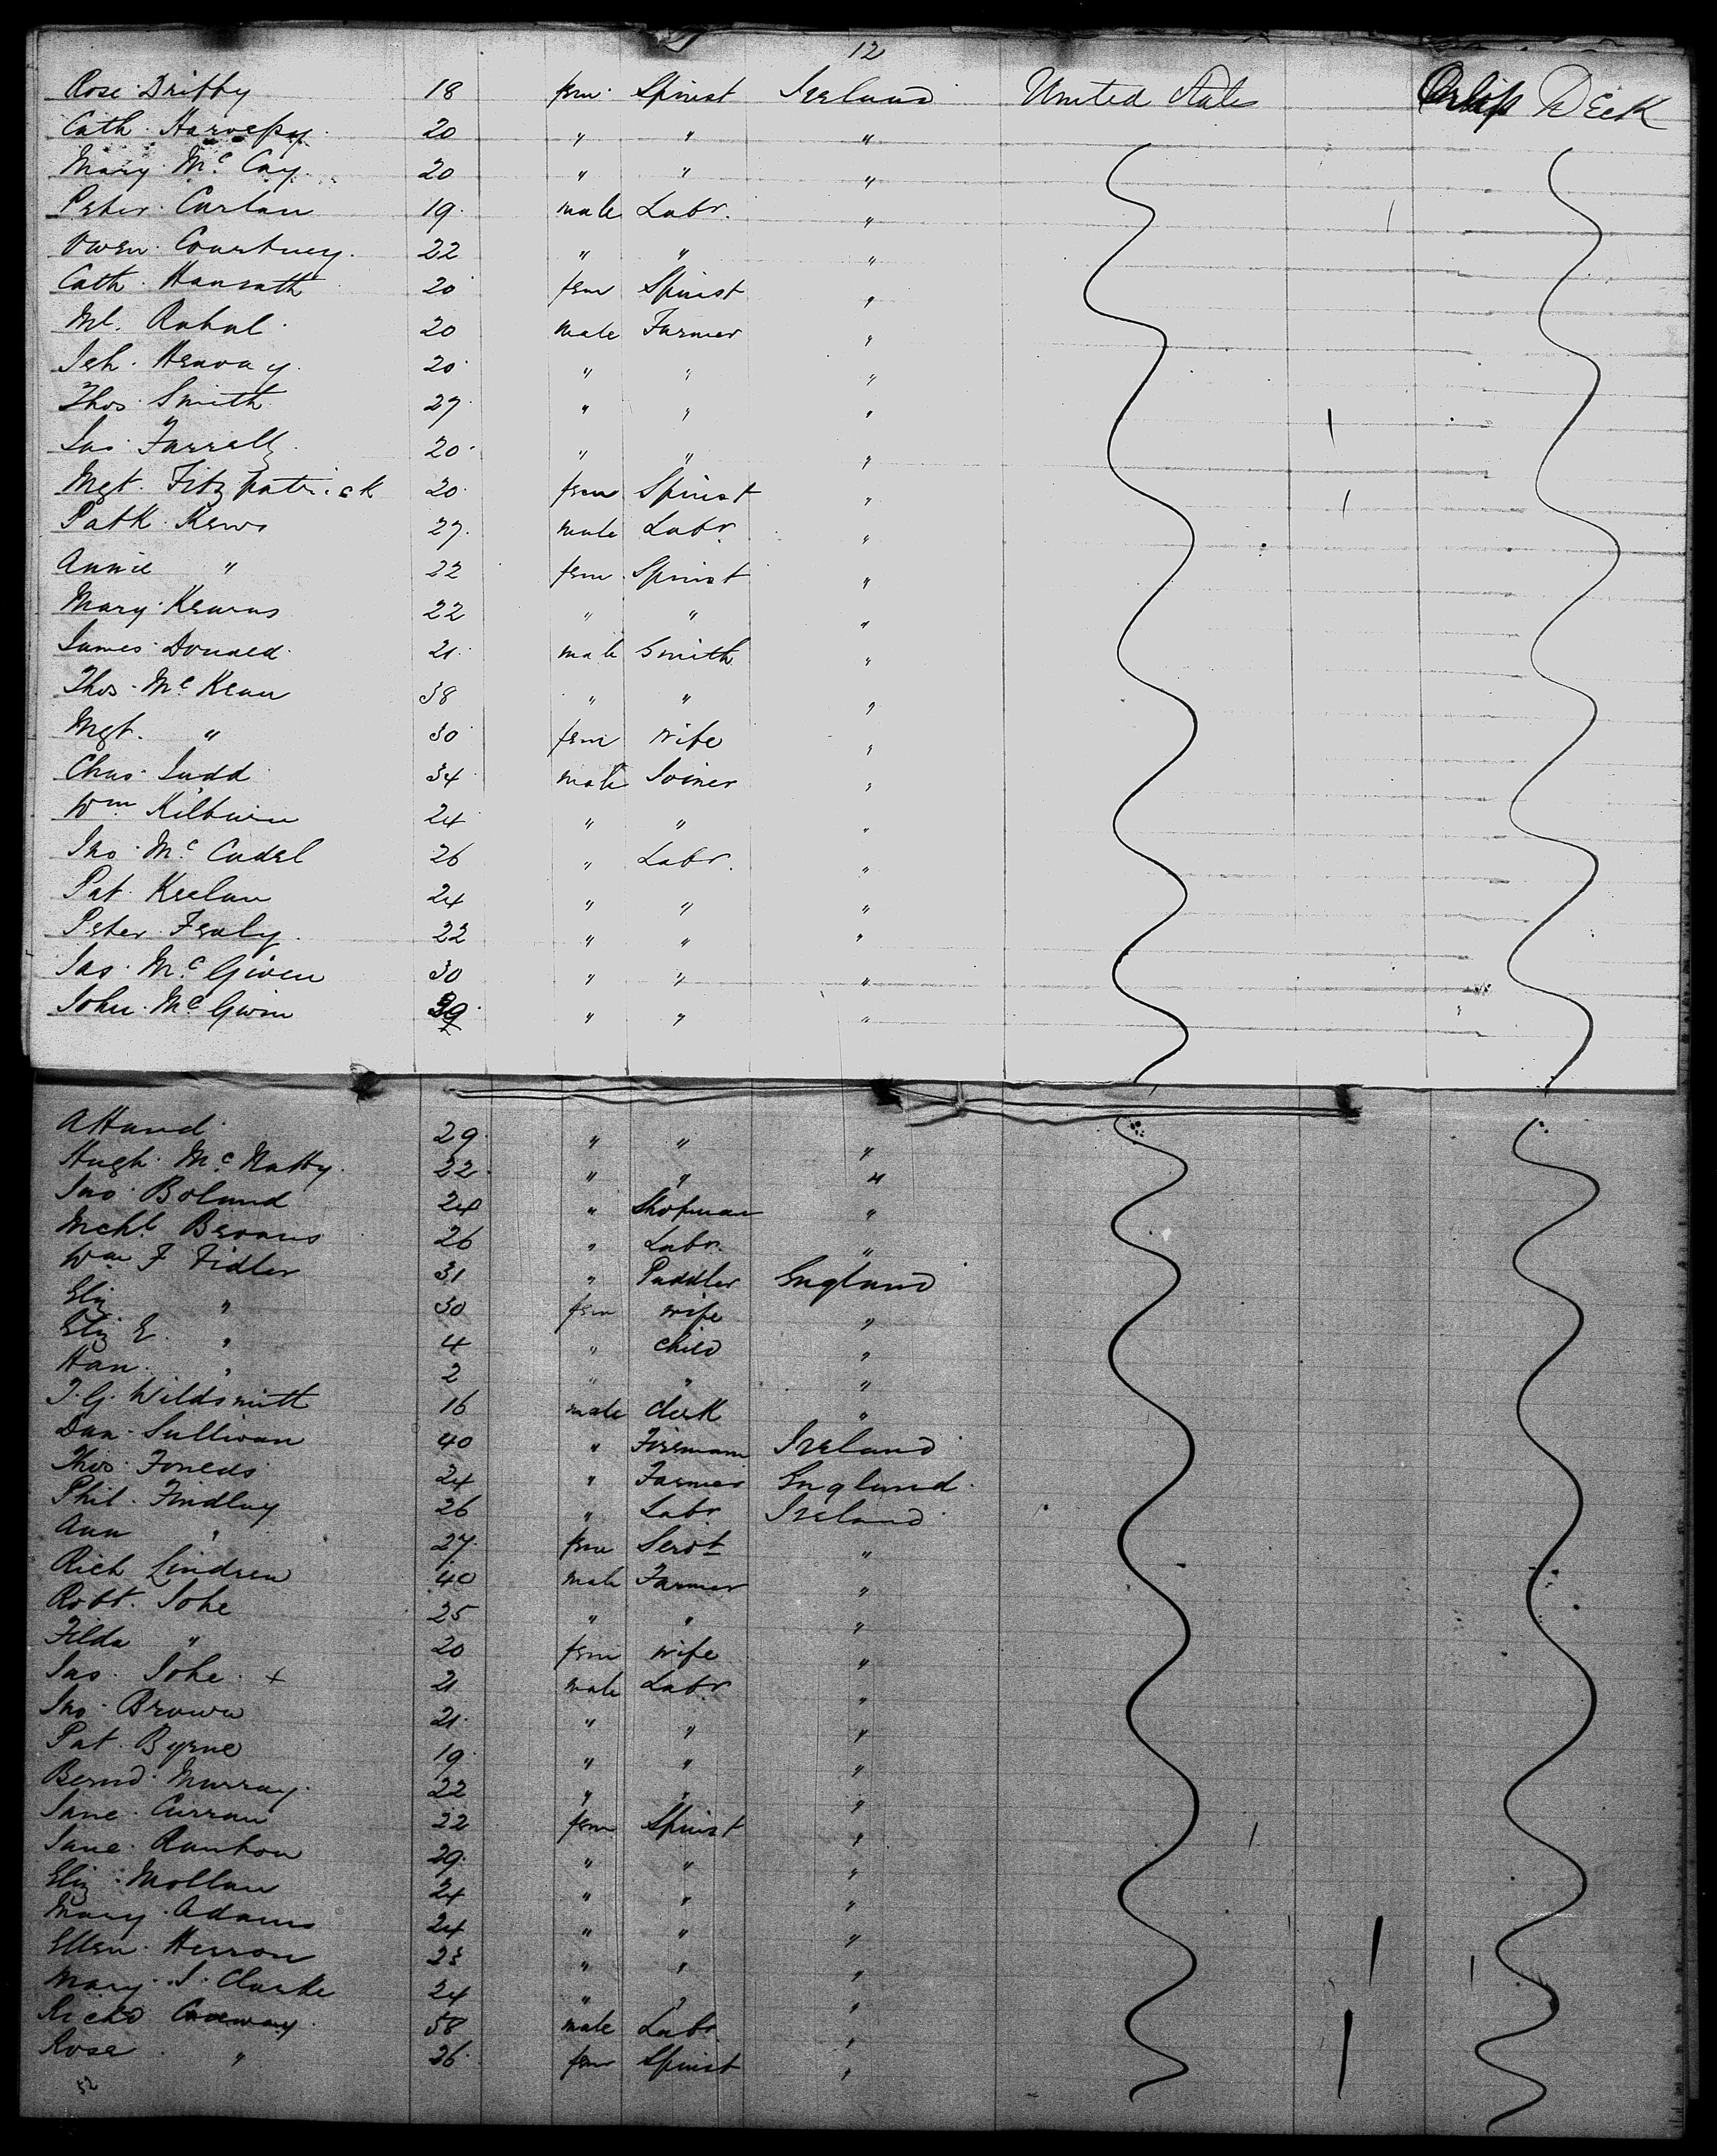 12
Rose Driffy 18 fem. Spinst Ireland United States Orlop Deck
Cath. 20 " " "
Mary Mc Coy 20 " " "
Peter Carlan 19 male Labr. "
Owen Courtney 22 " " "
Cath Hanrath 20 fem Spinst "
Ml. Rahal 20 male Farmer "
Jsh. 20 " " "
Thos Smith 27 " " "
Jas Farrelly 20 " " "
Mgt. Fitzpatrick 20 fem Spinst "
Patk Kerns 27 male Labr. "
Annie " 22 fem Spinst "
Mary Kearns 22 " " "
James Donald 21 male Smith "
Thos Mc Kean 38 " " "
Mgt. " 30 fem wife "
Chas Judd 34 male Joiner "
Wm Kilburn 24 " " "
Jno Mc Cadel 26 " Labr. "
Pat Keelan 24 " " "
Peter Fealy 22 " " "
Jas Mc Given 30 " " "
John Mc Gwin " " "
29 " " "
Hugh Mc Natty 22 " " "
Jno Boland 24 " Shopman "
Mchl 26 " Labr. "
Wm F Fidler 31 " Puddler England
Eliz " 30 fem wife "
Eliz E. " 4 " child "
Han. " 2 " " "
T. G. Wildsmith 16 male clerk "
Dan Sullivan 40 " Fireman Ireland
Thos 24 " Farmer England
Phil. Findlay 26 " Labr Ireland
Ann " 27 fem Servt "
Rich Lindsen 40 male Farmer "
Robt. Johe 25 " " "
Filda " 20 fem wife "
Jas. Johe + 21 male Labr "
Jno Brown 21 " " "
Pat. Byrne 19 " " "
Bernd Murray 22 " " "
Jane Curran 22 fem Spinst "
Jane 29 " " "
Eliz Mollan 24 " " "
Mary Adams 24 " " "
Ellen Herron 23 " " "
Mary J. Clarke 24 " " "
Richd Conway 58 male Labr "
Rose " 26 fem Spinst "
52